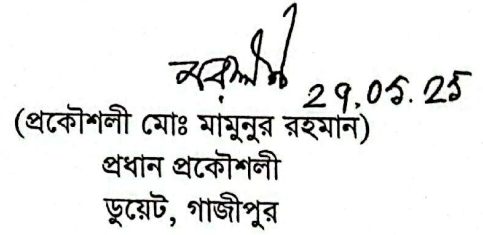 29.05.25
(প্রকৌশলী মোঃ মামুনুর রহমান)
প্রধান প্রকৌশলী
ডুয়েট, গাজীপুর